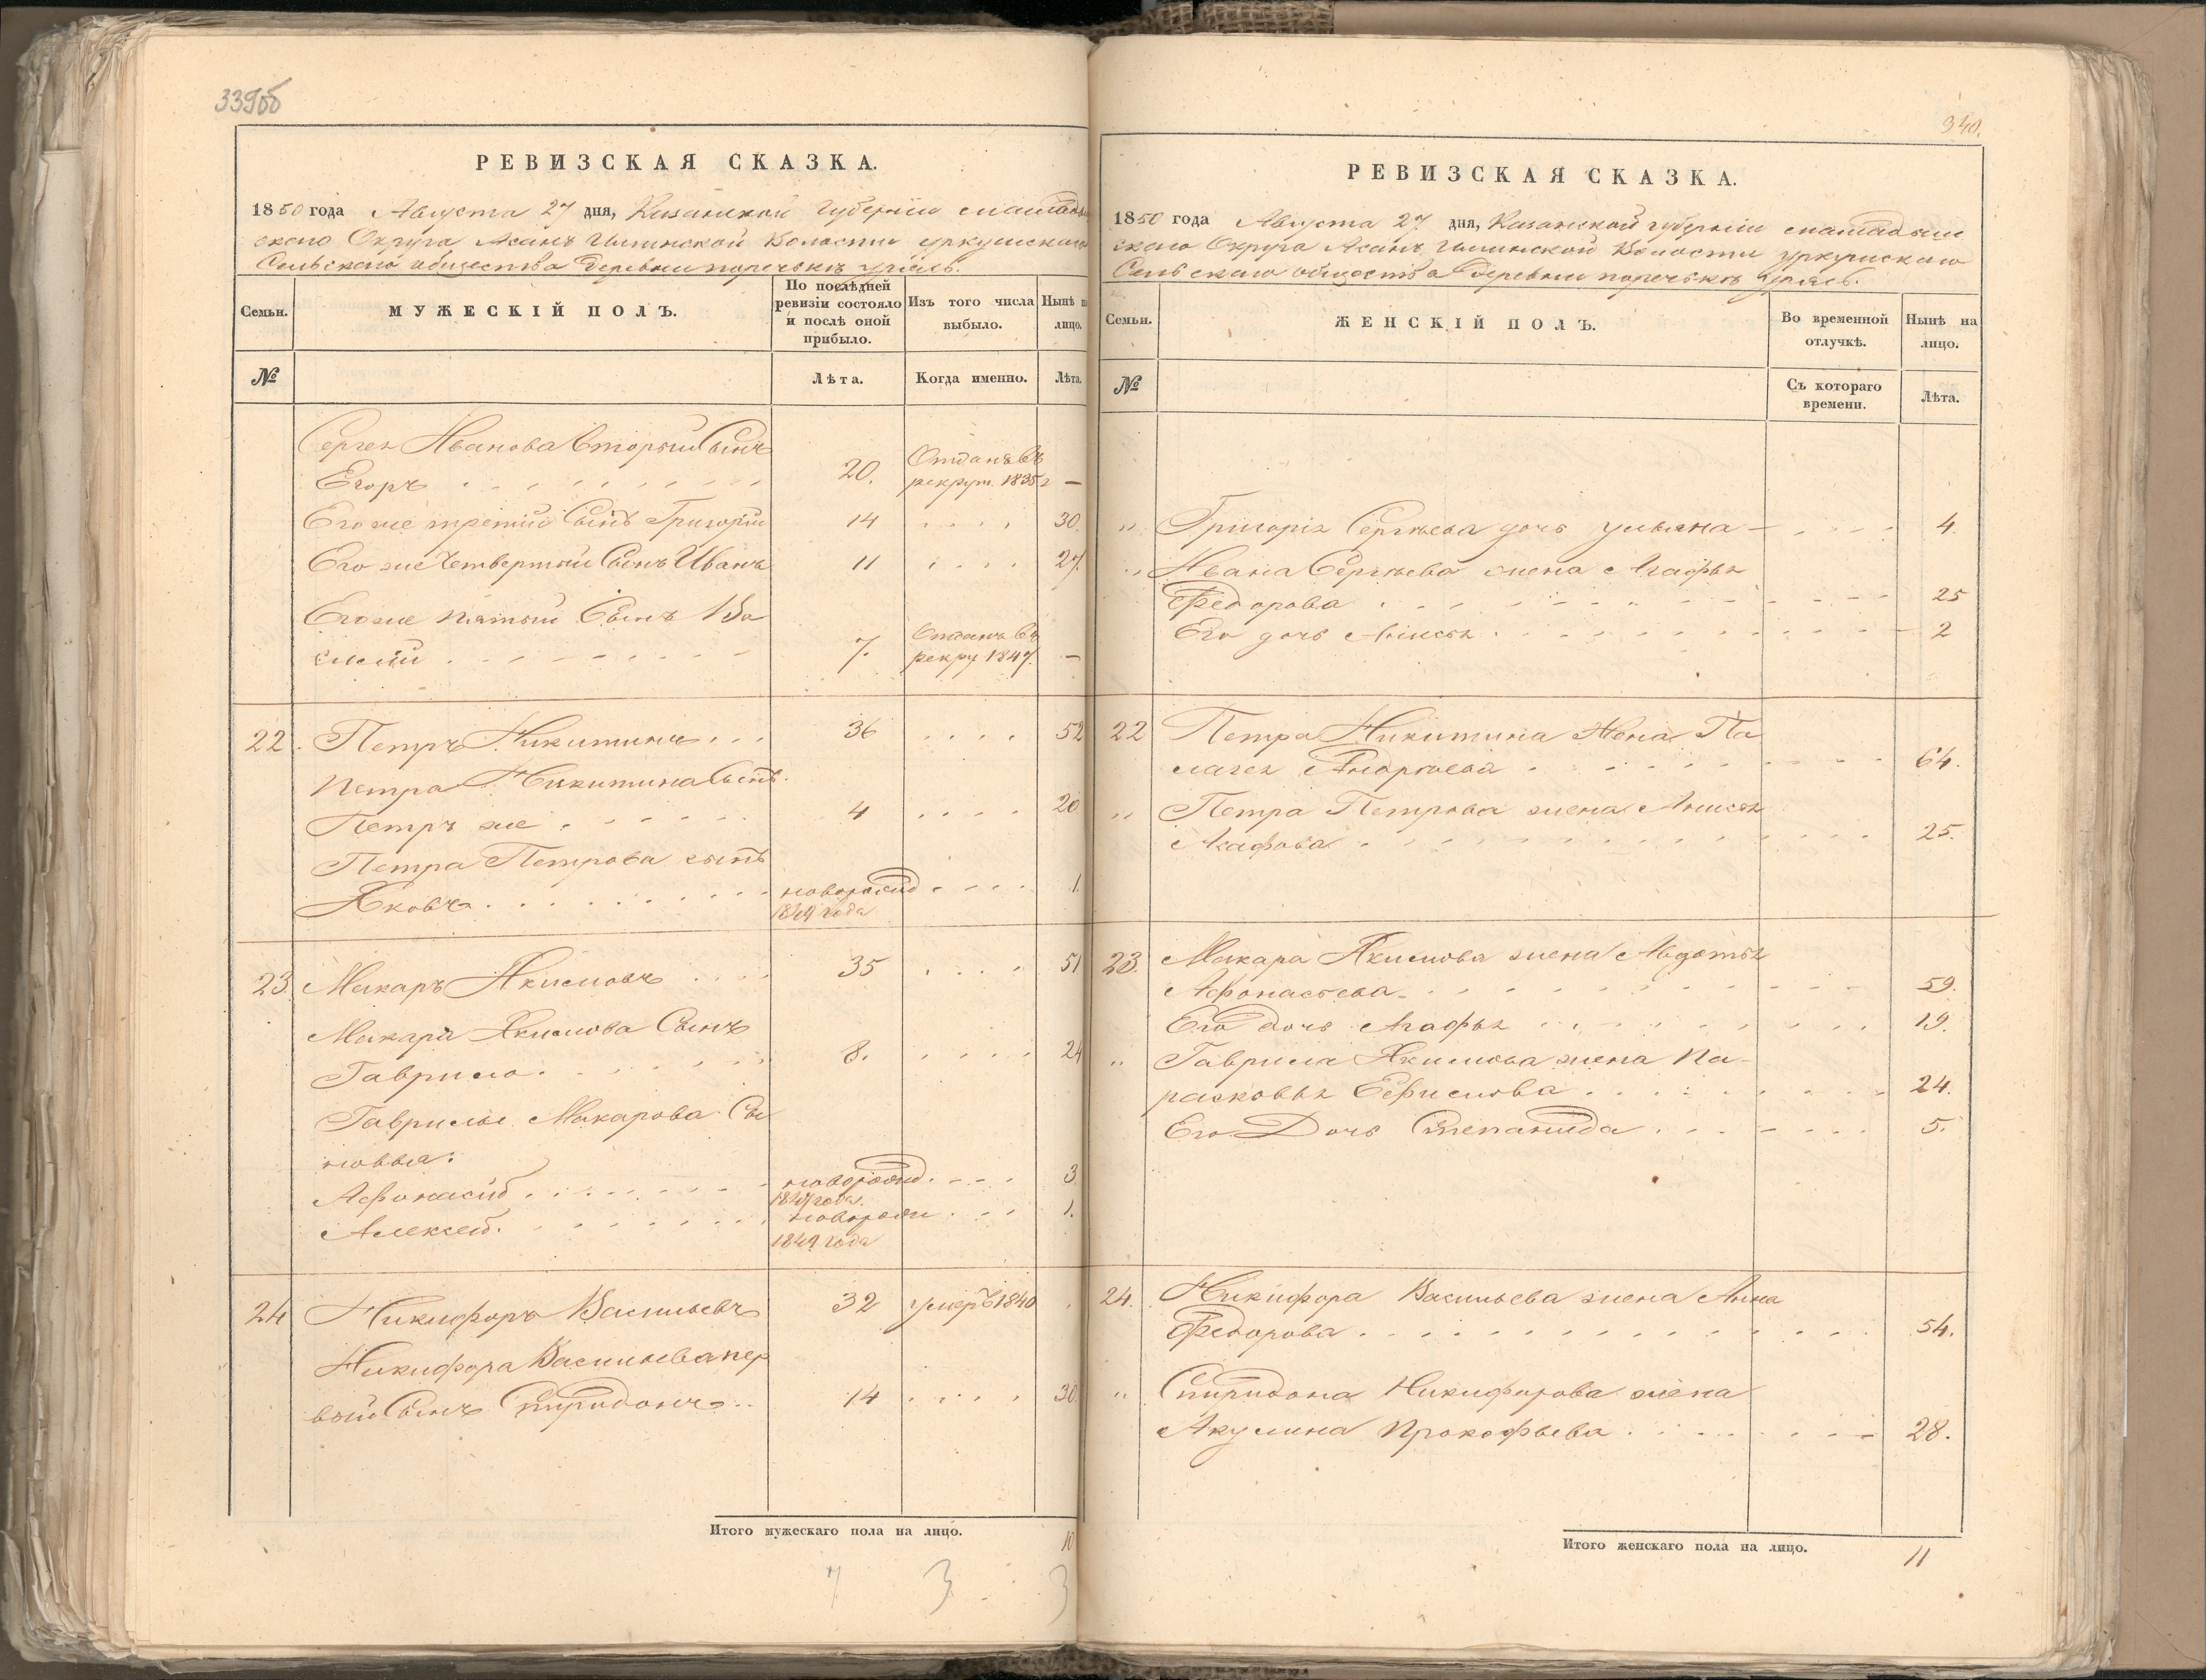 339об
РЕВИЗСКАЯ СКАЗКА.
1850 года Августа 27 дня, Казанской губернии
скаго Округа Асанъ Волости уркушскаго
Сельскаго общества деревни поречькъ
Семьи.
МУЖЕСКІЙ ПОЛЪ.
По послѣдней ревизіи состояло и послѣ оной прибыло.
Изъ того числа выбыло.
Нынѣ на лицо.
№
Лѣта.
Когда именно.
Лѣта.
Сергея Иванова вторый сынъ
Егоръ 20. Отданъ въ рекрут 1835 г —
Его же третій сынъ Григорій 14 30.
Его же четвертый сынъ Иванъ 11 27.
Его же пятый сынъ Ва
силій 7. Отданъ въ рекру 1847. —
22. Петръ Никитинъ 36 52
Петра Никитина сынъ
Петръ же 4 20.
Петра Петрова сынъ
Яковъ новорожд 1849 года 1.
23. Макаръ Якимовъ 35 51
Макара Якимова сынъ
Гаврило 8. 24
Гаврилы Макарова сы
новья:
Афонасий новорожд. 3
Алексей. новорож 1849 года 1.
24 Никифоръ Васильевъ 32 умеръ 1840
Никифора Васильева пер
вый сынъ Спиридонъ 14 30
Итого мужескаго пола на лицо. 10
7 3 3
340.
РЕВИЗСКАЯ СКАЗКА.
1850 года Августа 27 дня, Казанской губерніи
скаго Округа Асанъ Волости уркушскаго
Сельскаго общества деревни поречькъ
Семьи.
ЖЕНСКІЙ ПОЛЪ.
Во временной отлучкѣ.
Нынѣ на лицо.
№
Съ котораго времени.
Лѣта.
" Григорія Сергѣева дочь ульяна 4.
" Ивана Сергѣева жена Агафья
Федорова 25
Его дочь Анисья 2
22 Петра Никитина жена Па
лагея Андрѣева 64.
" Петра Петрова жена Анисья
25.
23. Макара Якимова жена Авдотья
Афонасьева 59.
Его дочь Агафья 19.
" Гаврила Якимова жена Па-
расковья Ефимова 24.
Его Дочь Степанида 5.
24. Никифора Васильева жена Анна
Федорова 54.
" Спиридона Никифорова жена
Акулина Прокофьева 28.
Итого женскаго пола на лицо. 11